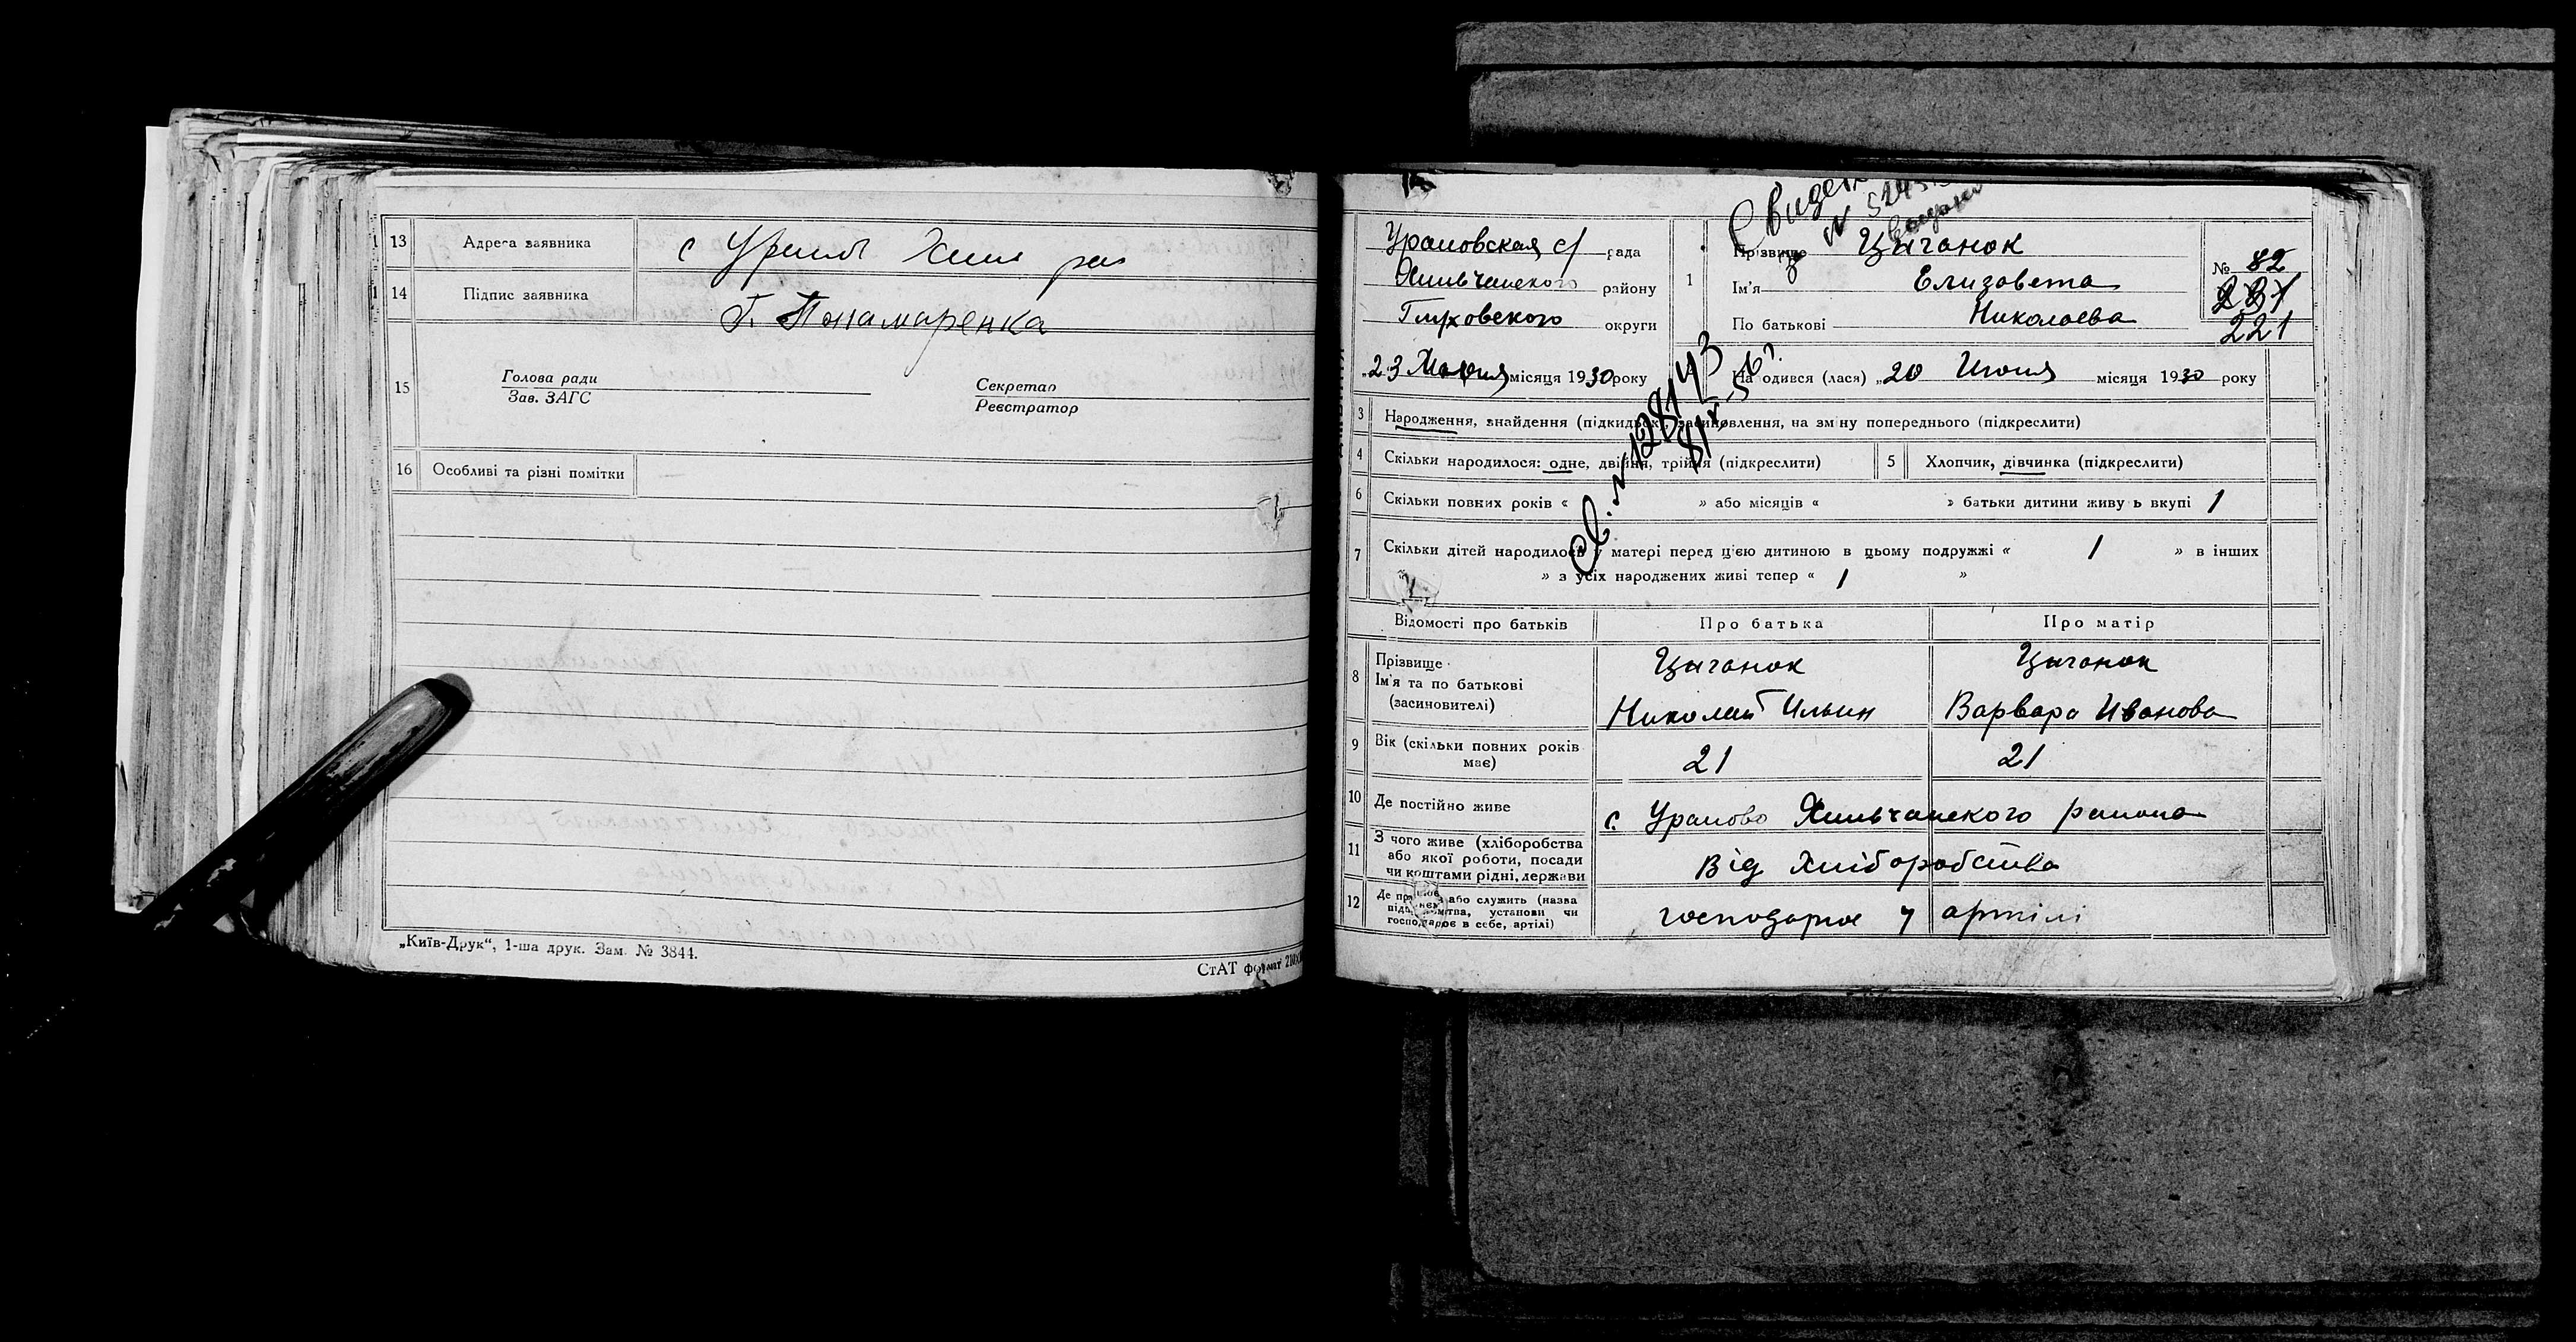 13 Адреса заявника с
14 Підпис заявника
Г. Понамаренка
15 Голова ради Секретар
Зав. ЗАГС Реєстратор
16 Особливі та різні помітки —
„Київ-Друк“, 1-ша друк. Зам. № 3844.
СтАТ формат
Ураповская с/ рада
району
Глуховского округи
1 Прізвище Цыганок
Ім'я Елизовета
По батькові Николаева
№ 82
221
„23 місяця 1930 року
Народився (лася) „20 Июня місяця 1930 року
3 Народження, знайдення (підкидьок), засиновлення, на зміну попереднього (підкреслити)
4 Скільки народилося: одне, двійня, трійня (підкреслити)
5 Хлопчик, дівчинка (підкреслити)
6 Скільки повних років « » або місяців « » батьки дитини живуть вкупі 1
7 Скільки дітей народилося у матері перед цією дитиною в цьому подружжі « 1 » в інших
» з усіх народжених живі тепер « 1 »
Відомості про батьків Про батька Про матір
8 Прізвище Цыганок Цыганок
Ім'я та по батькові
(засиновителі) Николай Ильин Варвара Иванова
9 Вік (скільки повних років
має) 21 21
10 Де постійно живе с. Урапово Хильчанского района
11 З чого живе (хліборобства
або якої роботи, посади
чи коштами рідні, держави
Від Хліборобства
12 Де працює або служить (назва
установи чи
господарює в себе, артілі)
господарює у артілі